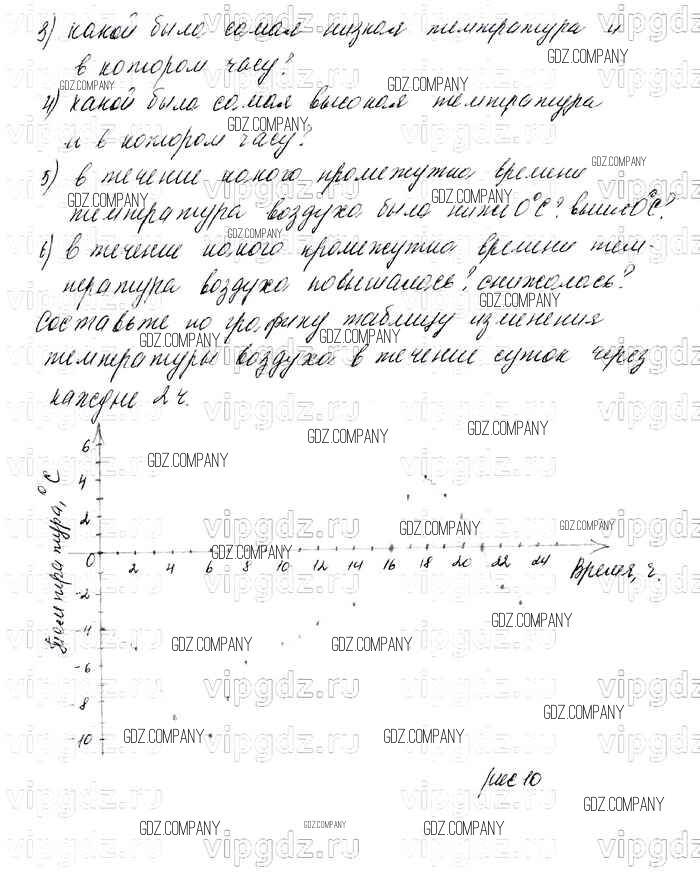 3) какой была самая низкая температура и
в котором часу?
4) какой была самая высокая температура
и в котором часу?
5) в течение какого промежутка времени
температура воздуха была ниже 0°С? выше 0°С?
6) в течение какого промежутка времени тем-
пература воздуха повышалась? снижалась?
Составьте по графику таблицу изменения
температуры воздуха в течение суток через
каждые 2 ч.
Температура, °С
6
4
2
0
-2
-4
-6
-8
-10
2 4 6 8 10 12 14 16 18 20 22 24
Время, ч.
рис 10
GDZ.COMPANY
vipgdz.ru